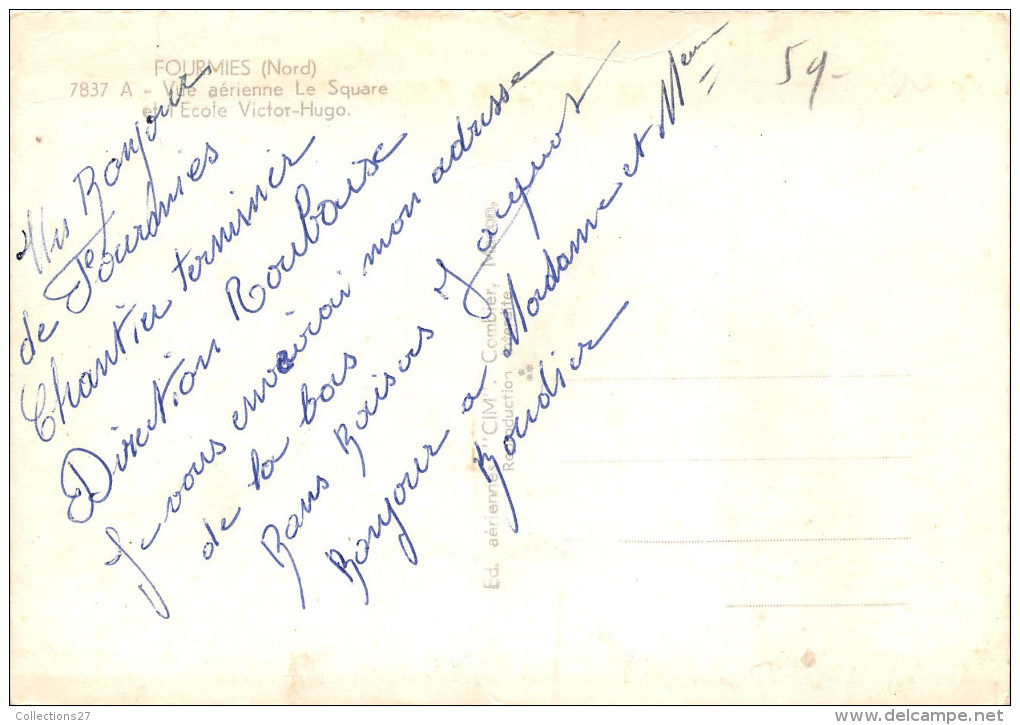 FOURMIES (Nord)
7837 A - Vue aérienne Le Square
et l'Ecole Victor-Hugo.
59-
Mes Bonjours
de Fourmies
Chantier terminer
Direction Roubaise
Je vous envoirai mon adresse
de la bas
Bons Baisers Jacquot
Bonjour a Madame et Mr
Boudier
Ed. aériennes "CIM". Combier, Macon,
Reproduction interdite
Collections27
www.delcampe.net